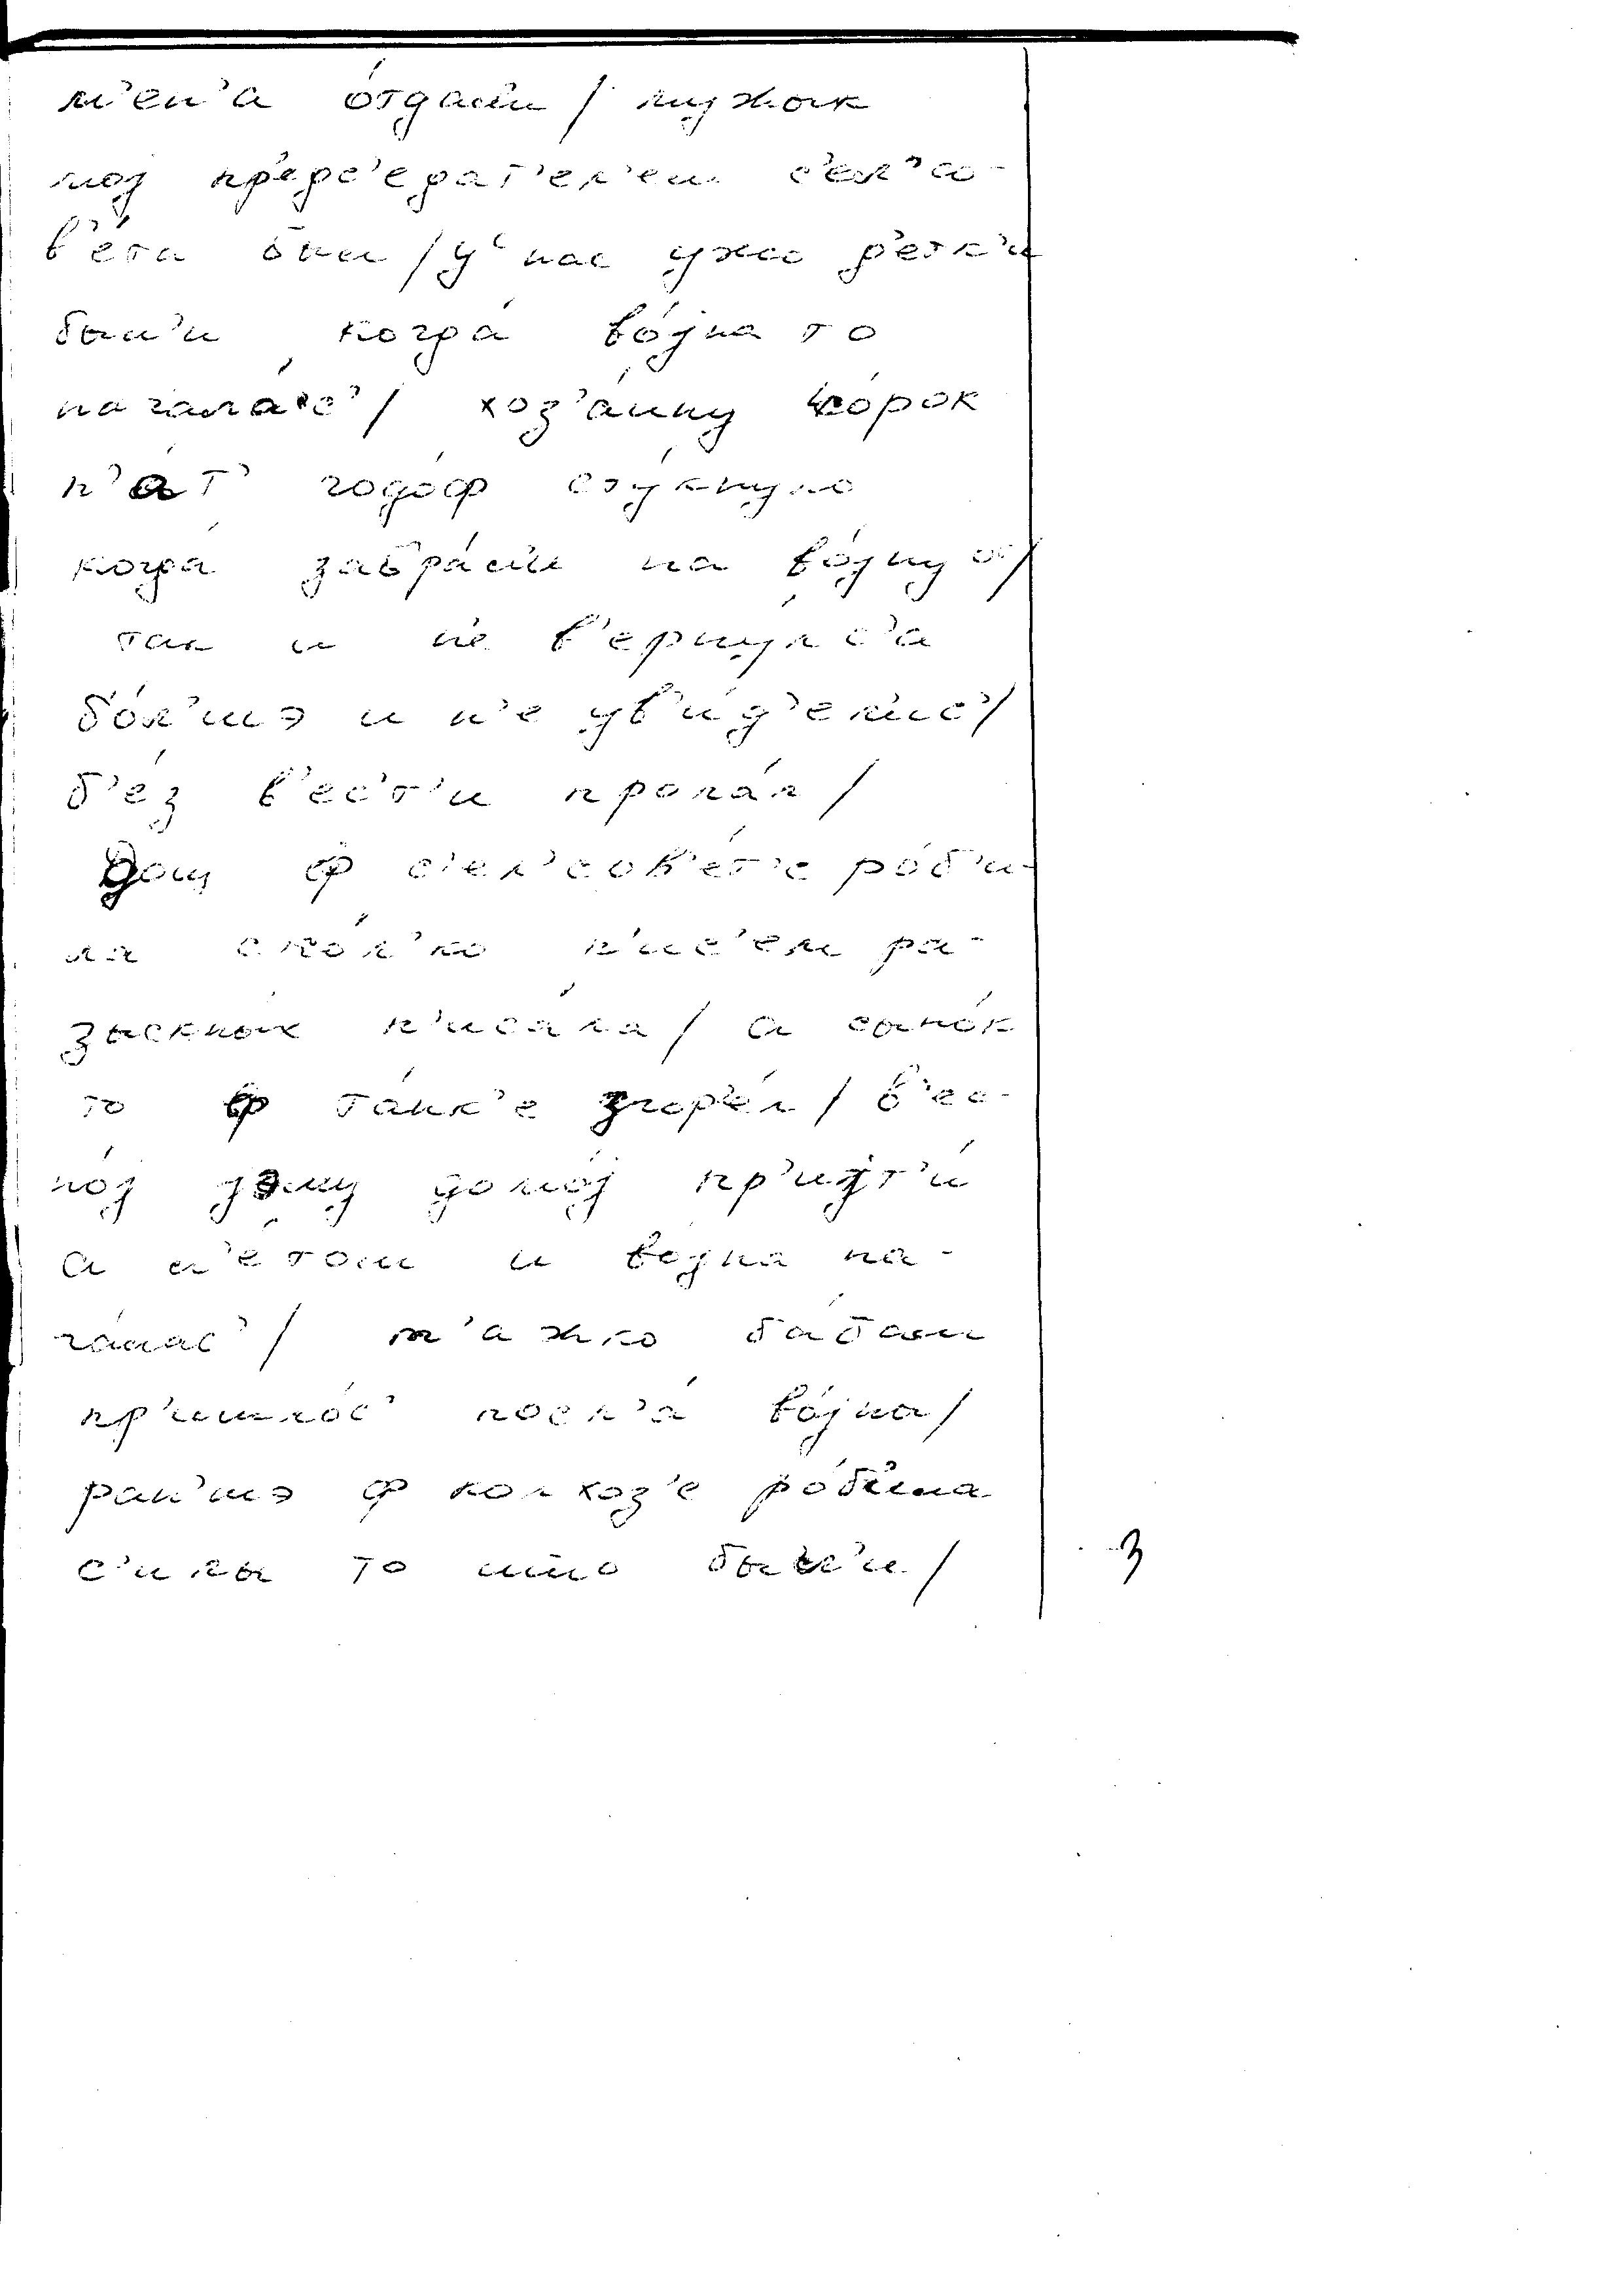 м'ен'а о́тдал'и / мужык
мој пр'едс'едат'ел'ем с'ел'со-
в'е́та был / у нас ужо д'етк'и
был'и когда́ во́јна то
начала́с' / хоз'а́ину со́рок
п'ат' годо́ф сту́кнуло
когда́ забра́л'и на во́јну
так и н'е в'ернулс'а
бо́л'шэ и н'е ув'и́д'ел'ис' /
б'ез в'ест'и пропа́л /
ф с'ел'сов'е́т'е ро́б'и-
ла ско́л'ко п'ис'ем ра-
зыскных п'иса́ла / а сыно́к
то ф та́нк'е згор'е́л / в'ес-
но́ј домо́ј пр'ијт'и́
а л'е́том и војна на-
чалас' / т'ажко ба́бам
пр'ишло́с' посл'а́ во́јны /
ран'шэ ф колхоз'е ро́б'ила
с'илы то был'и /
3